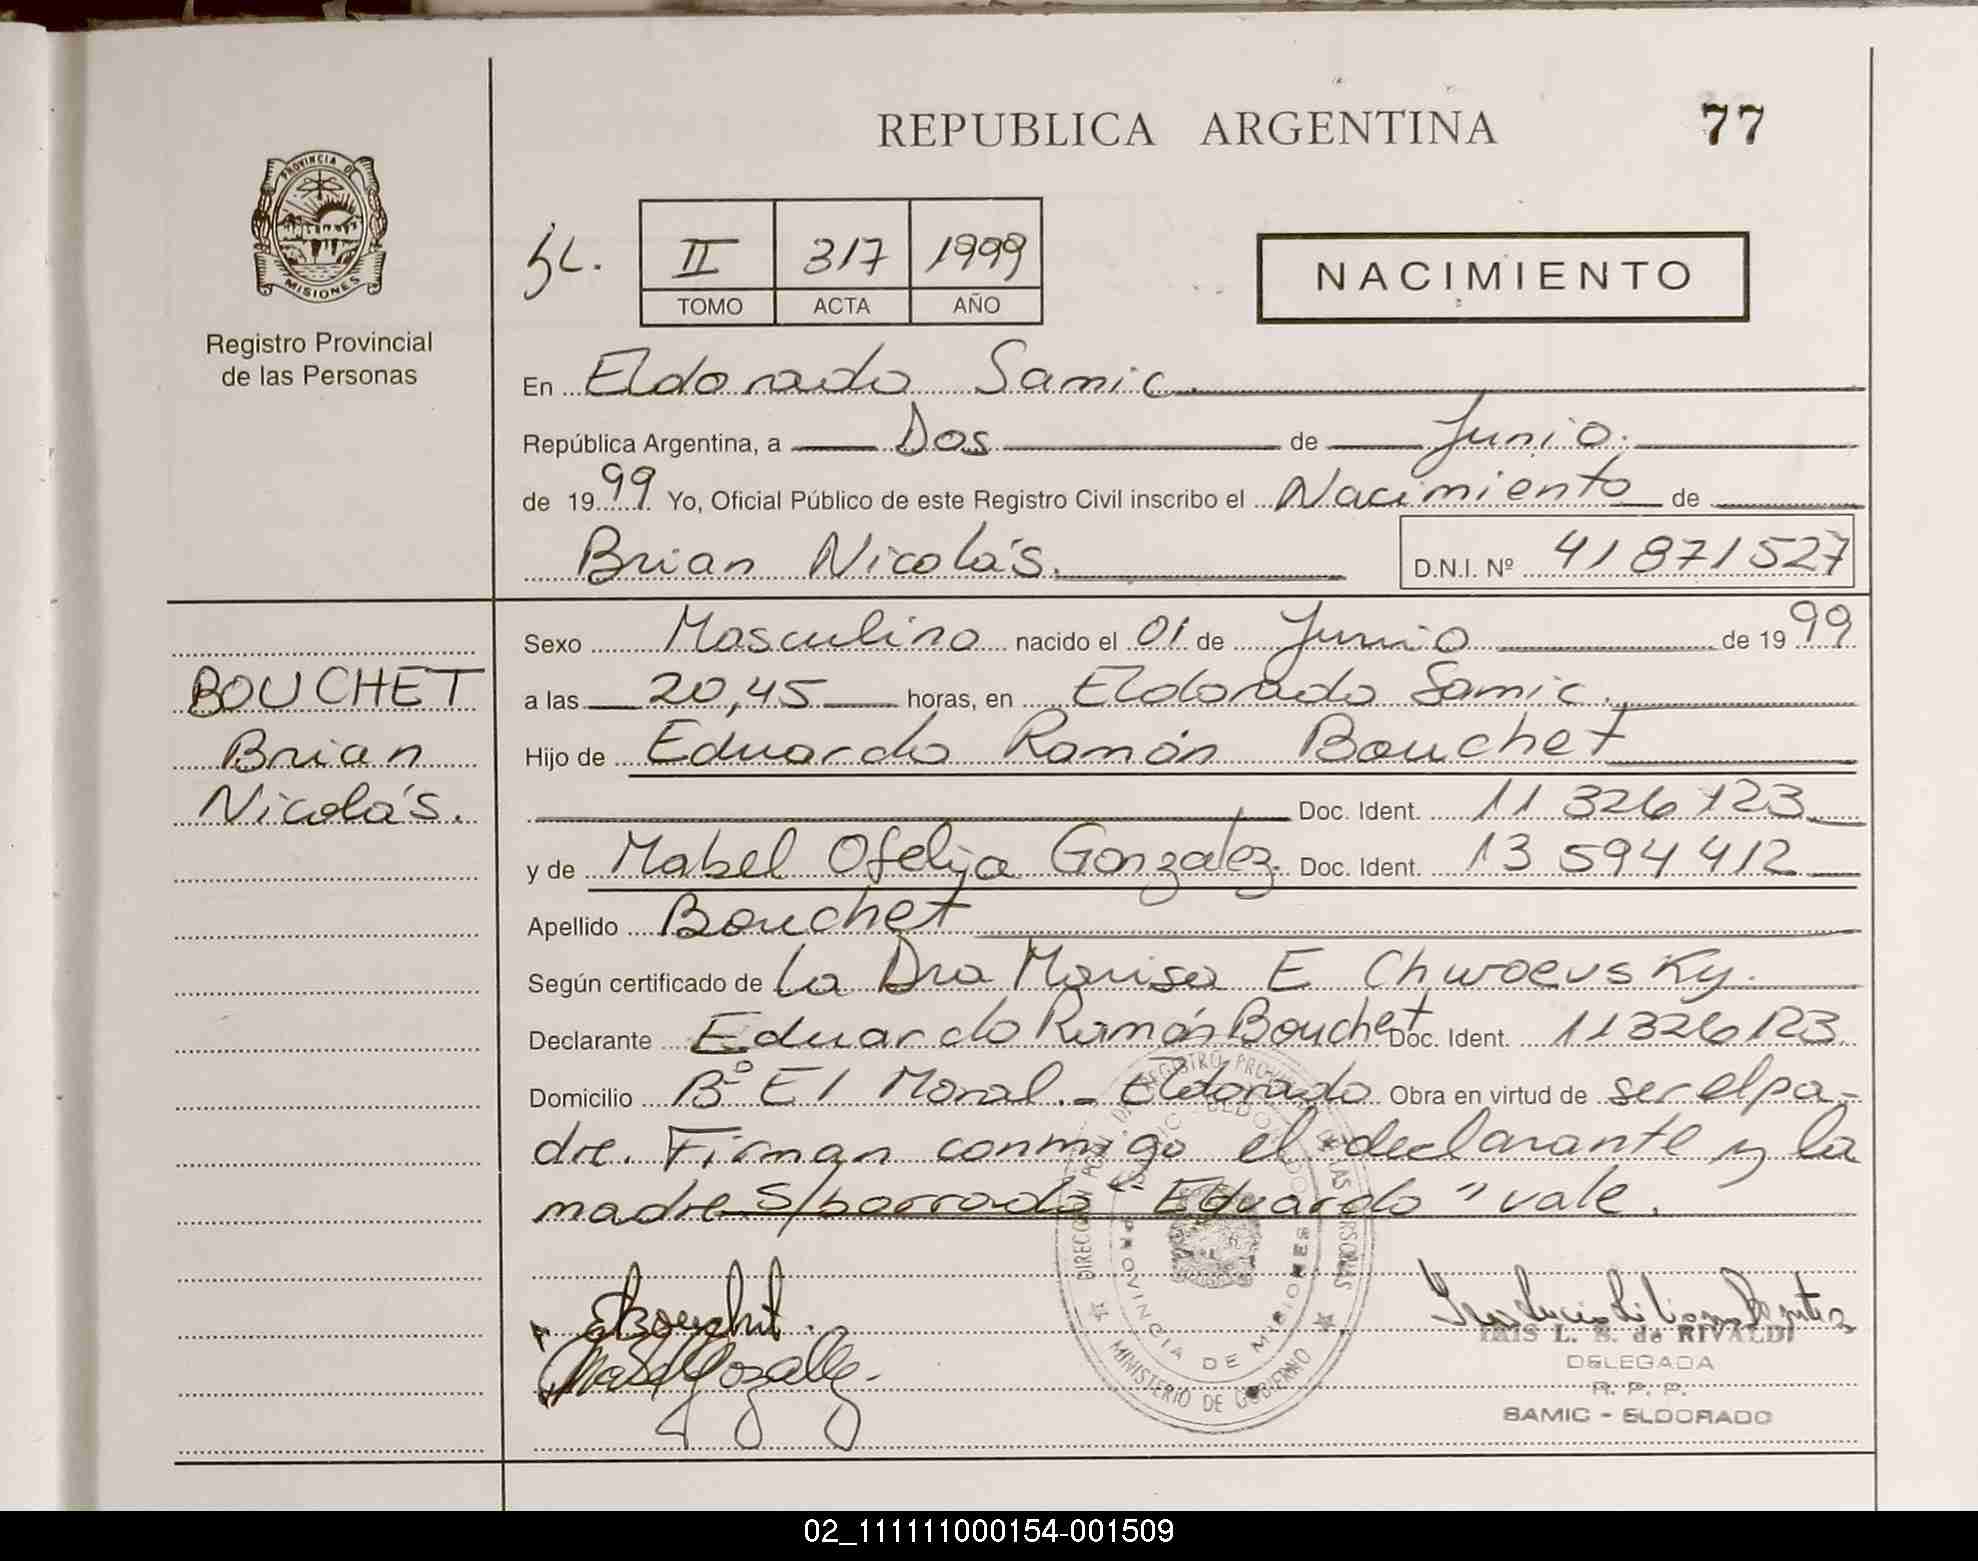 REPUBLICA ARGENTINA
77
PROVINCIA DE
MISIONES
Registro Provincial
de las Personas
II 317 1999
TOMO ACTA AÑO
NACIMIENTO
En Eldorado Samic.
República Argentina, a Dos de Junio.
de 1999 Yo, Oficial Público de este Registro Civil inscribo el Nacimiento de
Brian Nicolás. D.N.I. Nº 41871527
BOUCHET
Brian
Nicolás.
Sexo Masculino nacido el 01 de Junio de 1999
a las 20,45 horas, en Eldorado Samic.
Hijo de Eduardo Ramón Bouchet
Doc. Ident. 11 326 123
y de Mabel Ofelija Gonzalez. Doc. Ident. 13 594 412
Apellido Bouchet
Según certificado de La Dra Marisa E Chwoevsky.
Declarante Eduardo Ramón Bouchet Doc. Ident. 11326123
Domicilio Bº El Moral.- Eldorado Obra en virtud de ser el pa-
dre. Firman conmigo el declarante y la
madre S/borrado "Eduardo" vale.
EBouchet.
PROVINCIA DE MISIONES
MINISTERIO DE GOBIERNO
IRIS L. B. de RIVALDI
DELEGADA
R. P. P.
SAMIC - ELDORADO
02_111111000154-001509